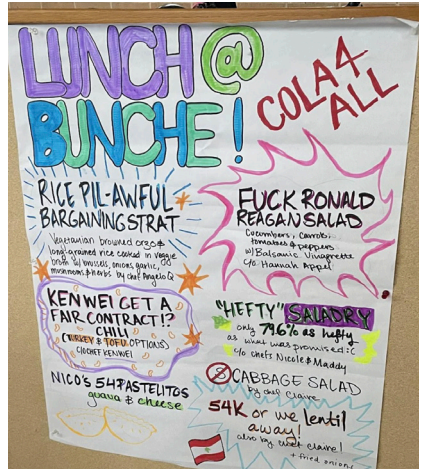 LUNCH @
BUNCHE!
COLA 4
ALL
RICE PIL-AWFUL
BARGAINING STRAT
Vegetarian browned orzo &
long-grained rice cooked in veggie
broth w/ brussels, onions, garlic,
mushrooms & herbs by chef Angelo Q
FUCK RONALD
REAGAN SALAD
Cucumbers, carrots,
tomatoes & peppers
w/ Balsamic Vinagrette
c/o Hannah Appel
KEN WE GET A
FAIR CONTRACT!?
CHILI
(TURKEY & TOFU OPTIONS)
C/O CHEF KEN WEI
"HEFTY" SALADRY
only 79.6% as hefty
as what was promised :C
c/o chefs Nicole & Maddy
NICO'S 54 PASTELITOS
guava & cheese
CABBAGE SALAD
by chef Claire
54K or we lentil
away!
also by chef Claire!
+ fried onions